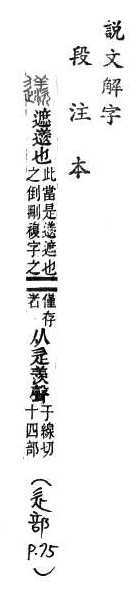 說文解字
段注本
遮也
此當是遮也
之倒刪複字之
僅存
者
从辵羨聲
于線切
十四部
(辵部
P.75)